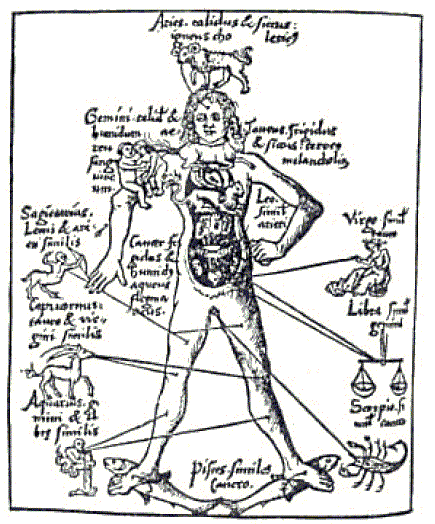 Aries. calidus & siccus
igneus cho
Gemini. calid' &
humidum
Taurus. frigidus
& siccus
melancholi
Leo.
simil'
arieti
Sagitarius.
Leoni & ari
eti similis
Cancer fri
gidus &
humid9
aqueus
flegma
ticus.
Virgo simil'
tauro
Capricornus
tauro & vir
gini similis
Libra simil'
Aquarius. ge
mini & li
bre similis
Scorpio. si
mil' cancro
Pisces. similes
Cancro.